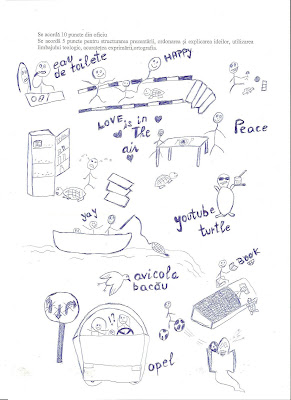 Se acordă 10 puncte din oficiu
Se acordă 5 puncte pentru structurarea prezentării, ordonarea și explicarea ideilor, utilizarea
limbajului teologic, acuratețea exprimării, ortografia.
eau
de toilete
OBI
HAPPY
LOVE is in
The
air
Peace
yay
youtube
turtle
avicola
bacău
BOOK
!?
opel